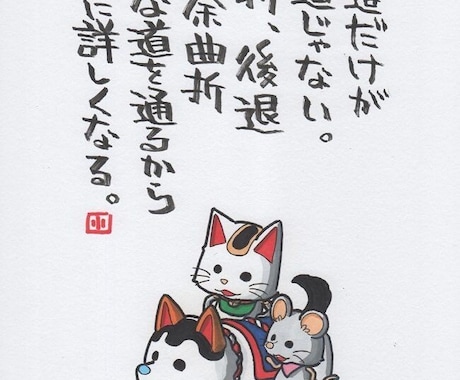 道だけが
道じゃない。
折、後退
余曲折
な道を通るから
に詳しくなる。